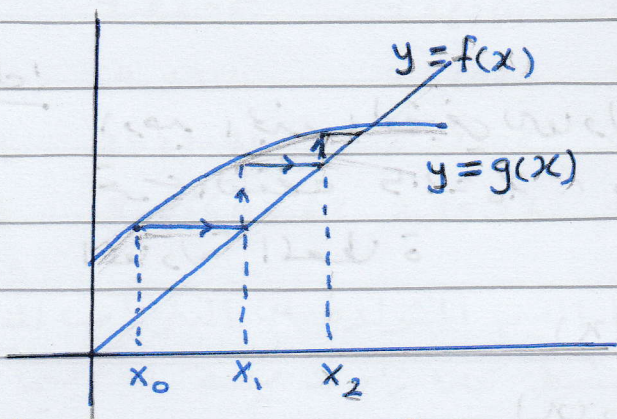 y = f(x)
y = g(x)
x₀ x₁ x₂